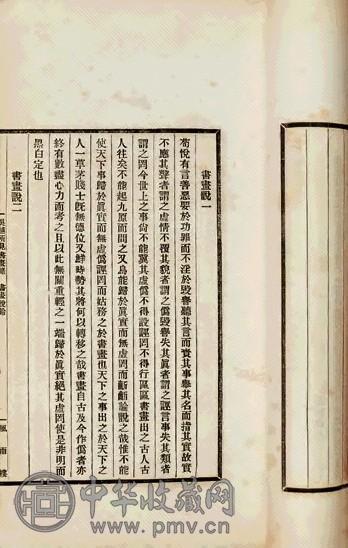 書畫說一
荀悅有言善惡要於功罪而不淫於毀譽聽其言而責其事舉其名而指其實故實
不應其聲者謂之虛情不覆其貌者謂之僞毀譽失其眞者謂之誣言事失其類者
謂之罔今世上之事尚不能冀其虛僞不得設誣罔不得行區區書畫出之古人古
人往矣不能起九原而問之又烏能歸於眞實而無虛罔而齗齗論說之哉惟不能
使天下事歸於眞實而無虛僞誣罔而姑務之於書畫也天下之事出之於天下之
人一草茅賤士旣無德位又鮮時勢其將何以轉移之哉書畫自古及今作僞者亦
終有數盡心力而考之且以此無關重輕之一端歸於眞實絕其虛罔使是非明而
黑白定也
書畫說二
吳越所見書畫錄 書畫說鈴
一 風雨樓
中华收藏网
www.pmv.cn